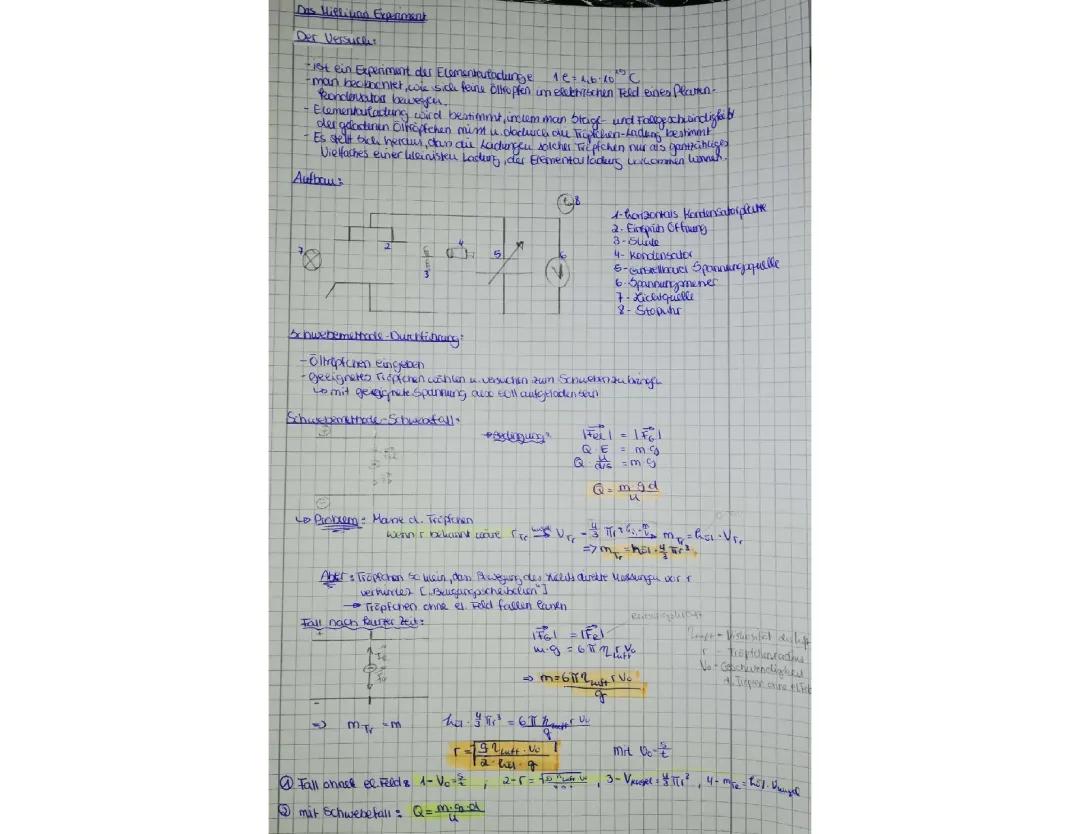 Das Millikan Experiment
Der Versuch:
- ist ein Experiment der Elementarladung 1 e = 1,6·10⁻¹⁹ C
- man beobachtet, wie sich feine Öltropfen im elektrischen Feld eines Platten-
kondensators bewegen.
- Elementarladung wird bestimmt, indem man Steige- und Fallgeschwindigkeit
der geladenen Öltröpfchen misst u. dadurch die Tröpfchen-Ladung bestimmt
- Es stellt sich heraus, dass die Ladungen solcher Tröpfchen nur als ganzzahliges
Vielfaches einer kleinsten Ladung, der Elementarladung vorkommen können.
Aufbau:
1- horizontale Kondensatorplatte
2- Einsprüh Öffnung
3- Skala
4- Kondensator
5- einstellbare Spannungsquelle
6- Spannungsmesser
7- Lichtquelle
8- Stopuhr
7 2 3 4 5 6 8 V
Schwebemethode-Durchführung:
- Öltröpfchen eingeben
- geeignetes Tröpfchen wählen u. versuchen zum Schweben zu bringen
↳ mit geeignete Spannung
Schwebemethode-Schwebefall:
→ Bedingung: |F⃗el| = |F⃗G|
Q·E = m·g
Q·U/d = m·g
Q = m·g·d/U
↳ Problem: Masse d. Tröpfchen
wenn r bekannt wäre r_Tr → V_Tr = 4/3 πr³ → m_Tr = ρöl · V_Tr
=> m_Tr = ρöl · 4/3 πr³
Aber: Tröpfchen so klein, dass Beugung des Lichts direkte Messungen von r
verhindert ["Beugungsscheibchen"]
→ Tröpfchen ohne el. Feld fallen lassen
Fall nach kurzer Zeit:
|F⃗G| = |F⃗R|
m·g = 6πη_Luft r v₀
=> m = 6πη_Luft r v₀/g
η_Luft - Viskosität der Luft
r - Tröpfchenradius
v₀ - Geschwindigkeit
d. Tropfen ohne el. Feld
=> m_Tr = m ρöl · 4/3 πr³ = 6πη_Luft r v₀/g
r = √(9η_Luft · v₀/2·ρöl·g) mit v₀ = s/t
① Fall ohne el. Feld: 1- v₀ = s/t , 2- r = , 3- V_Kugel = 4/3 πr³ , 4- m_Tr = ρöl · V_Kugel
② mit Schwebefall: Q = m·g·d/U